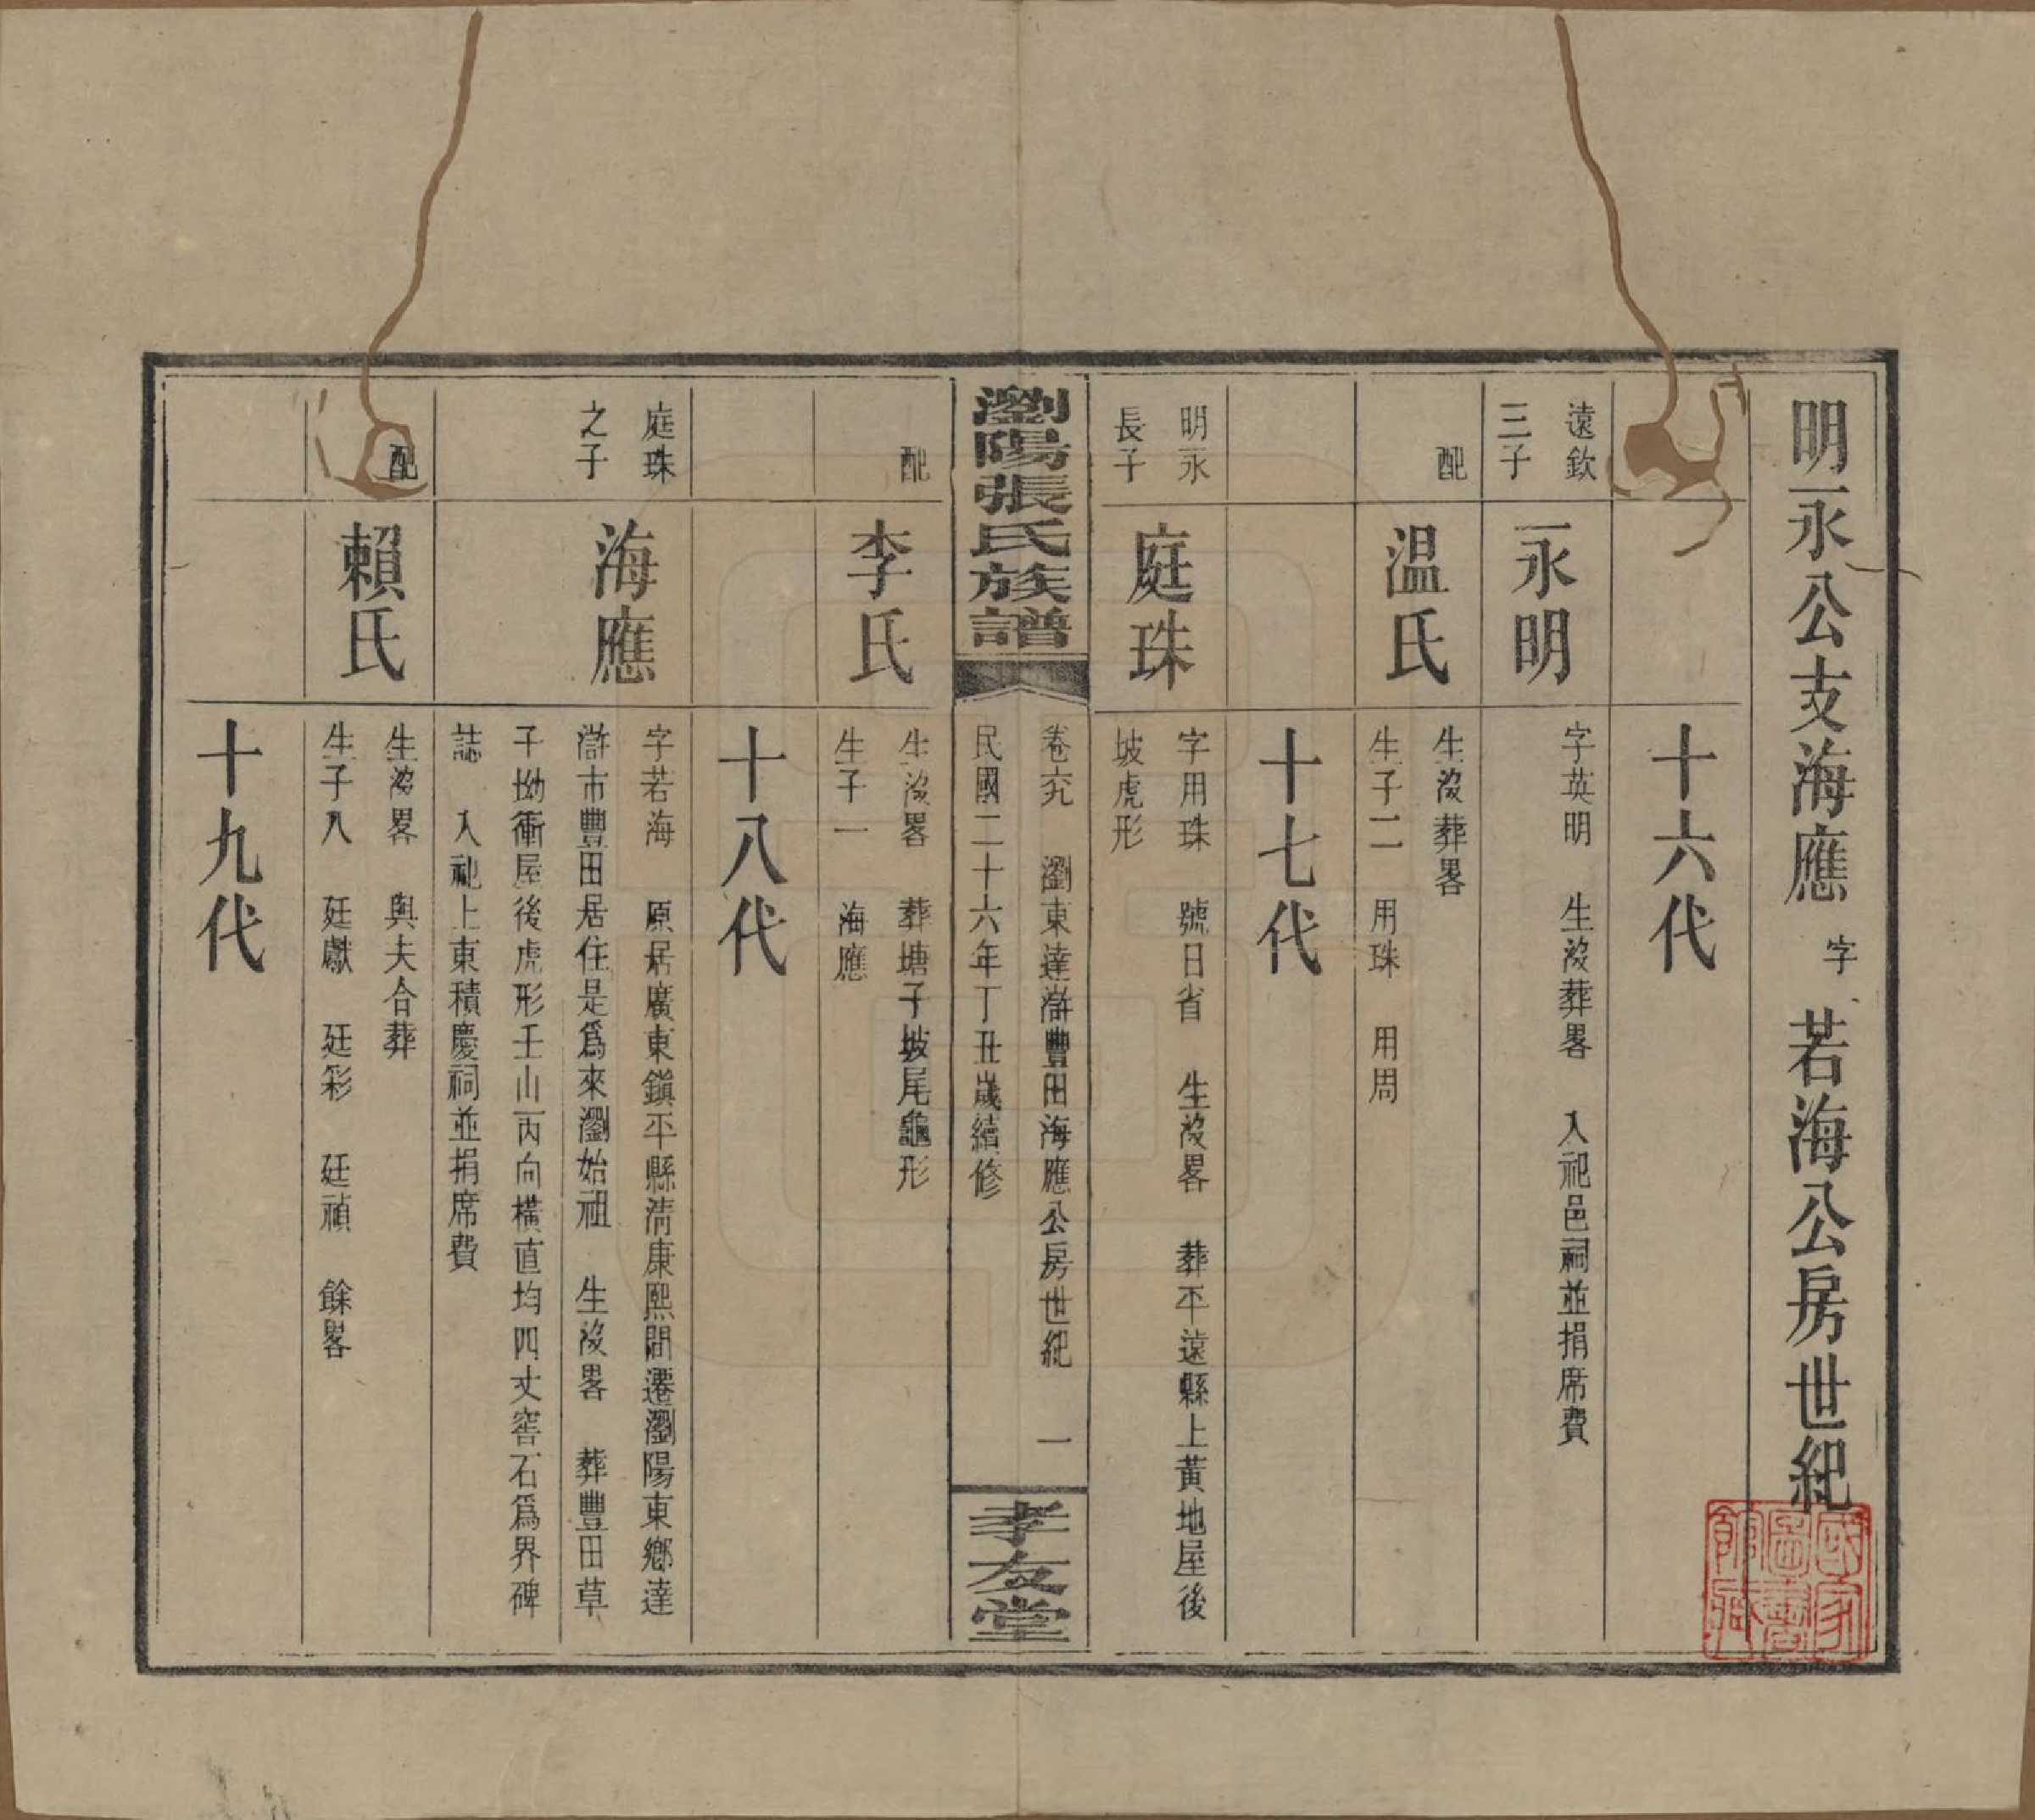 明永公支海應字若海公房世紀
十六代
遠欽
三子
永明
字英明 生歿葬畧 入祀邑祠並捐席費
配
温氏
生歿葬畧
生子二 用珠 用周
十七代
明永
長子
庭珠
字用珠 號日省 生歿畧 葬平遠縣上黃地屋後
坡虎形
瀏陽張氏族譜
卷六 瀏東達滸豐田海應公房世紀 一
民國二十六年丁丑歲續修
孝友堂
配
李氏
生歿畧 葬塘子坡尾龜形
生子一 海應
十八代
庭珠
之子
海應
字若海 原居廣東鎮平縣清康熙間遷瀏陽東鄉達
滸市豐田居住是爲來瀏始祖 生歿畧 葬豐田草
子坳衝屋後虎形壬山丙向橫直均四丈窖石爲界碑
誌 入祀上東積慶祠並捐席費
配
賴氏
生歿畧 與夫合葬
生子八 廷獻 廷彩 廷禎 餘畧
十九代
國家圖書館藏